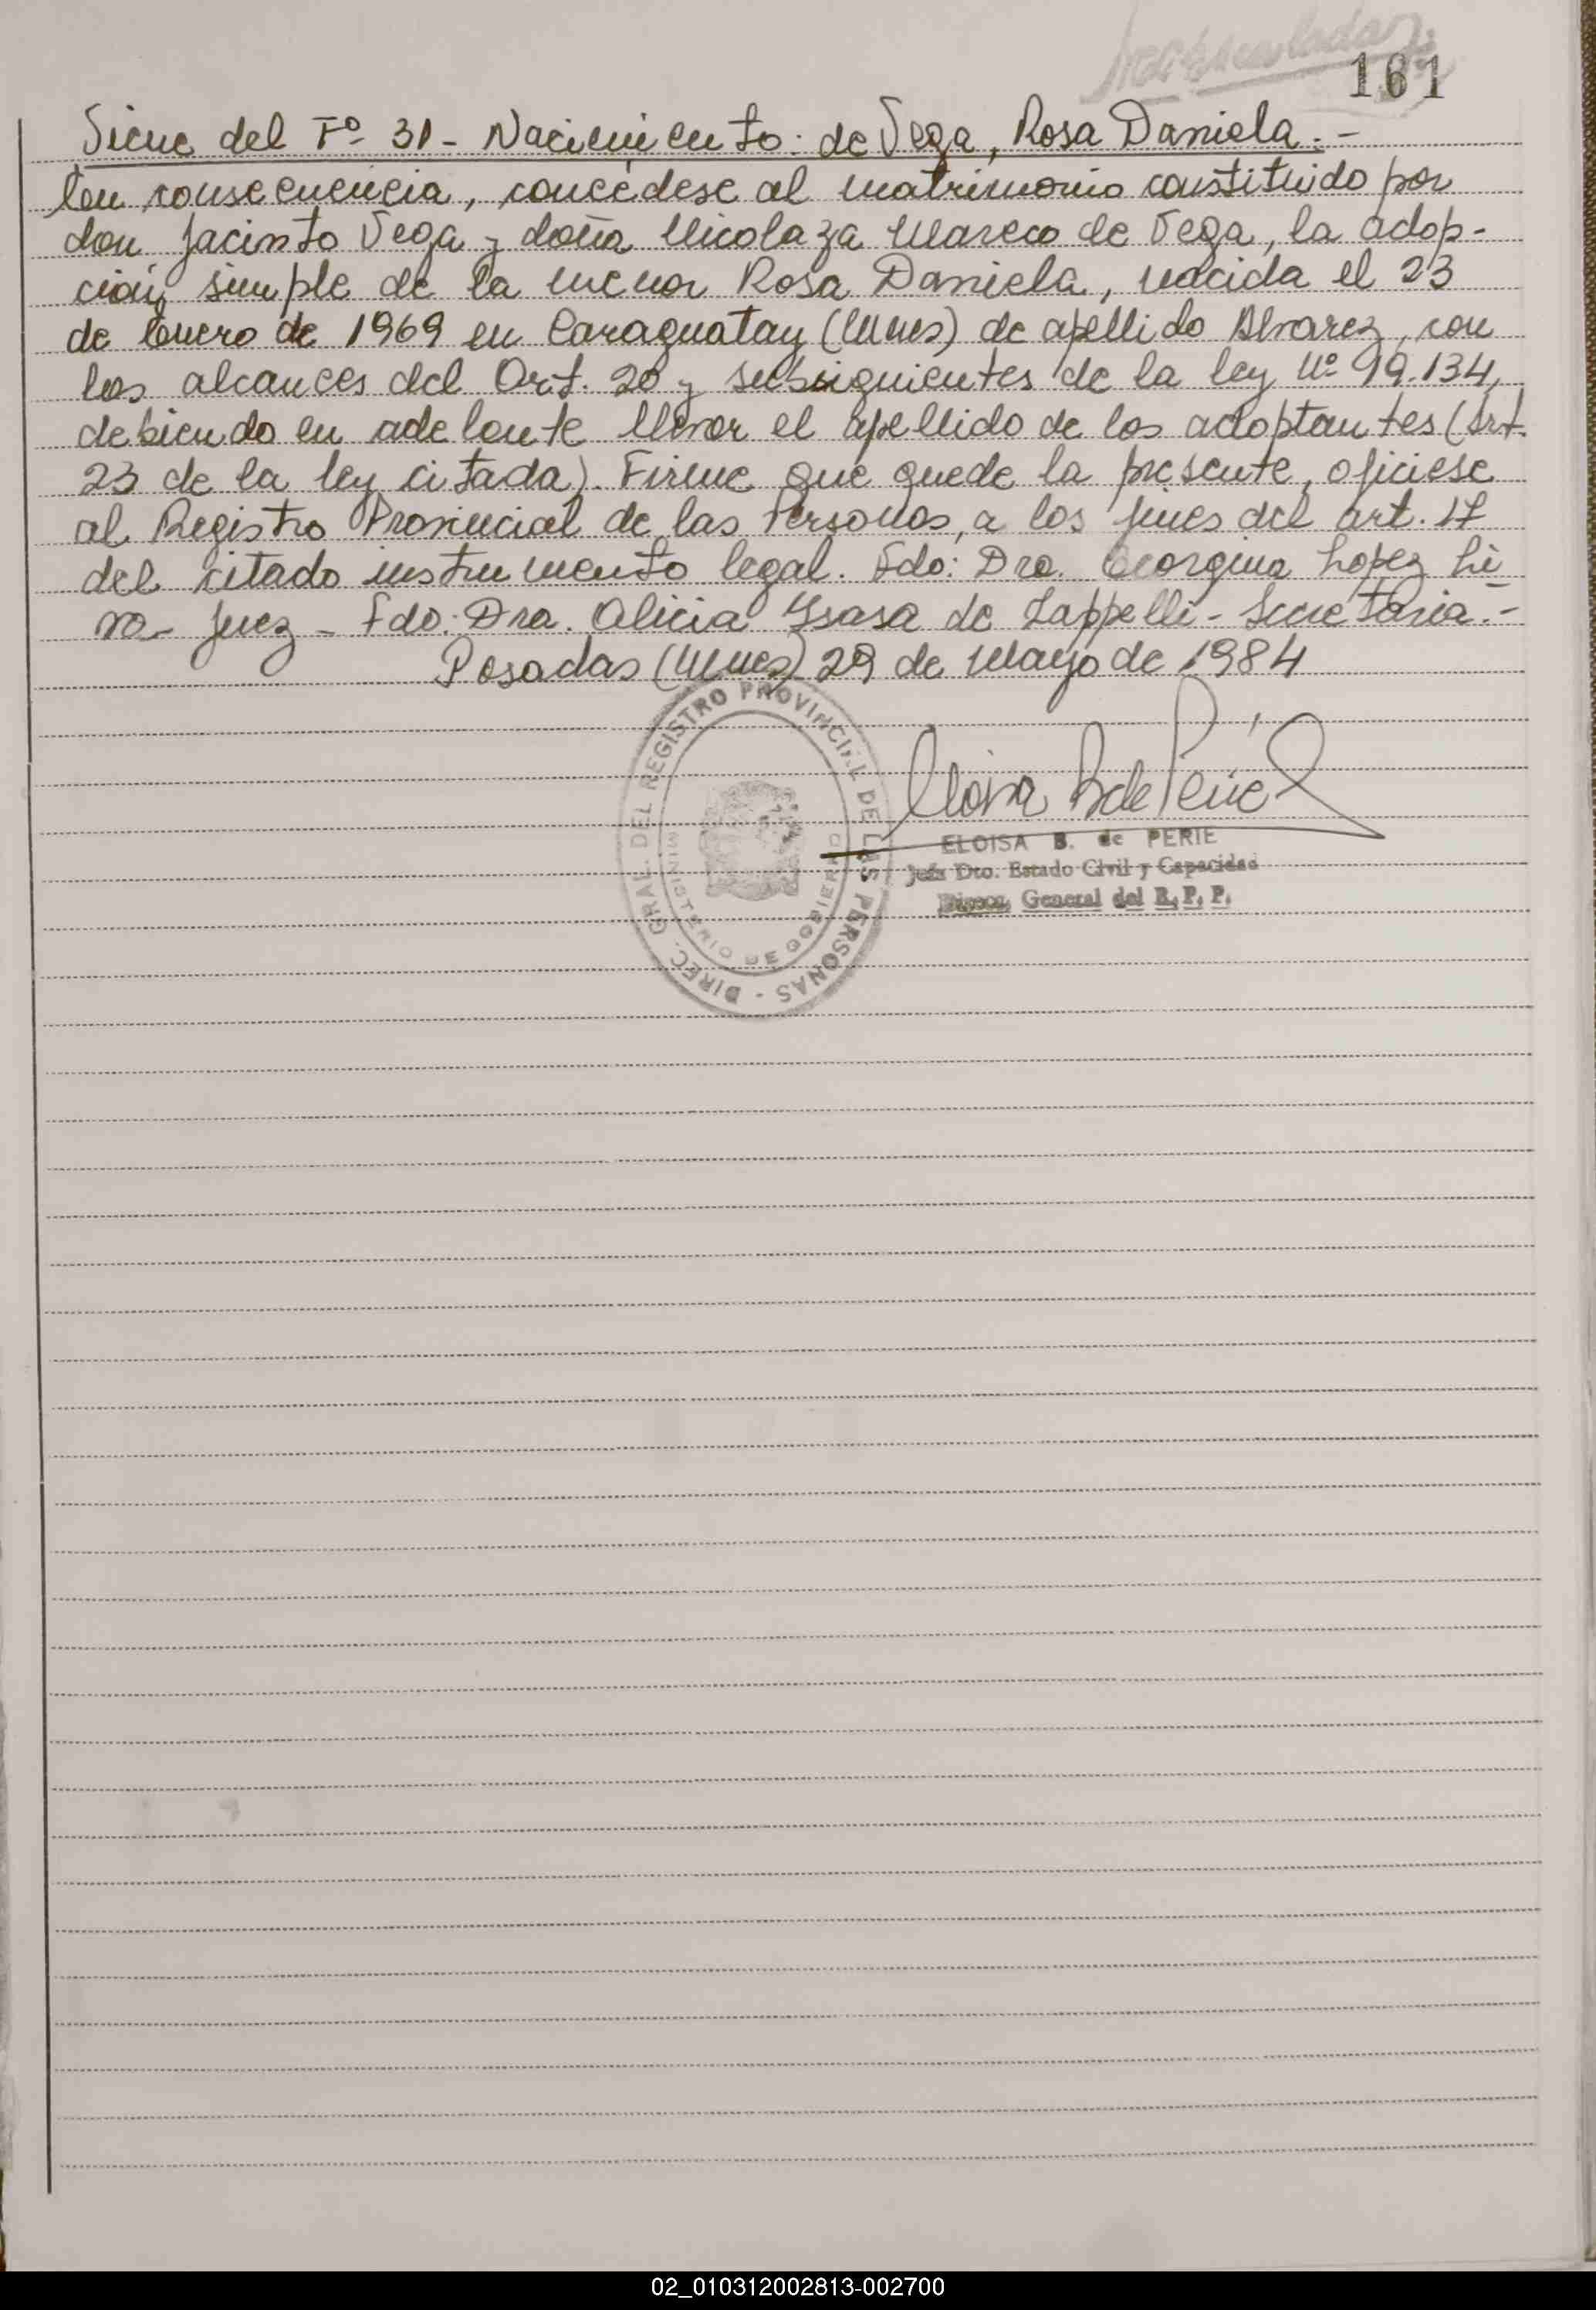 161
Viene del Fº 31 - Nacimiento: de Vega, Rosa Daniela. -
En consecuencia, concédese al matrimonio constituido por
don Jacinto Vega y doña Nicolaza Mareco de Vega, la adop-
ción simple de la menor Rosa Daniela, nacida el 23
de Enero de 1969 en Caraguatay (Mnes) de apellido Alvarez, con
los alcances del Art. 20 y subsiguientes de la ley Nº 19.134,
debiendo en adelante llevar el apellido de los adoptantes (Art.
23 de la ley citada). Firme que quede la presente, ofíciese
al Registro Provincial de las Personas, a los fines del art. 17
del citado instrumento legal. Fdo: Dra. Georgina Lopez Li
ra - Juez - Fdo: Dra. Alicia Ysasa de Zappelli - Secretaria. -
Posadas (Mnes) 29 de Mayo de 1984
DIREC. GRAL. DEL REGISTRO PROVINCIAL DE LAS PERSONAS -
MINISTERIO DE GOBIERNO
ELOISA B. de PERIE
Jefa Dto. Estado Civil y Capacidad
General del R. P. P.
02_010312002813-002700